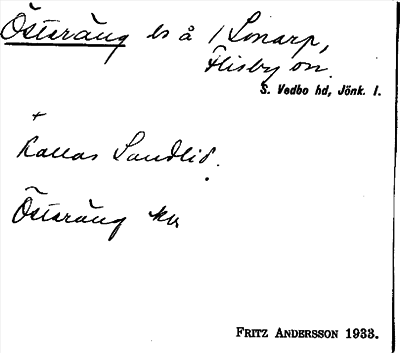 Österäng ls å 1 Lonarp,
Flisby sn.
S. Vedbo hd, Jönk. l.
+
kallas Sandlid.
Österäng ku
FRITZ ANDERSSON 1933.